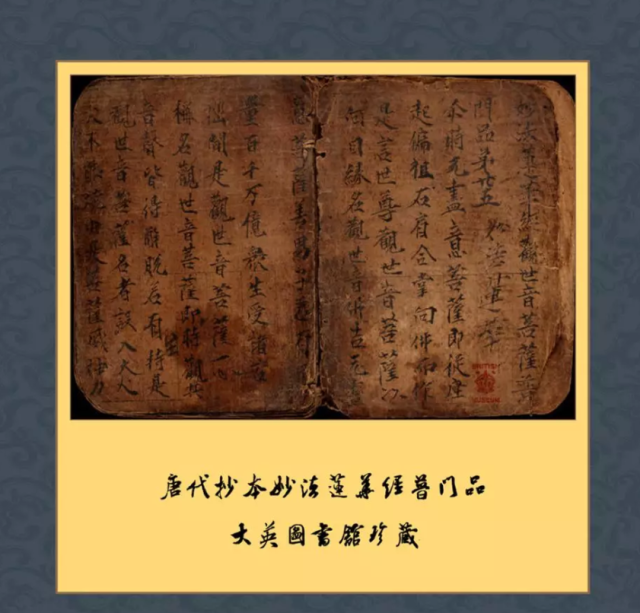 妙法蓮華経觀世音菩薩普
門品第廿五 妙法蓮華
尒時无盡意菩薩即從座
起偏袒右肩合掌向佛而作
是言世尊觀世音菩薩以
何因緣名觀世音佛告无盡
意菩薩善男子若有
量百千万億衆生受諸苦
惱聞是觀世音菩薩一心
稱名觀世音菩薩即時觀其
音聲皆得解脫若有持是
觀世音菩薩名者設入大火
火不能燒由是菩薩威神力
唐代抄本妙法蓮華经普门品
大英圖書館珍藏